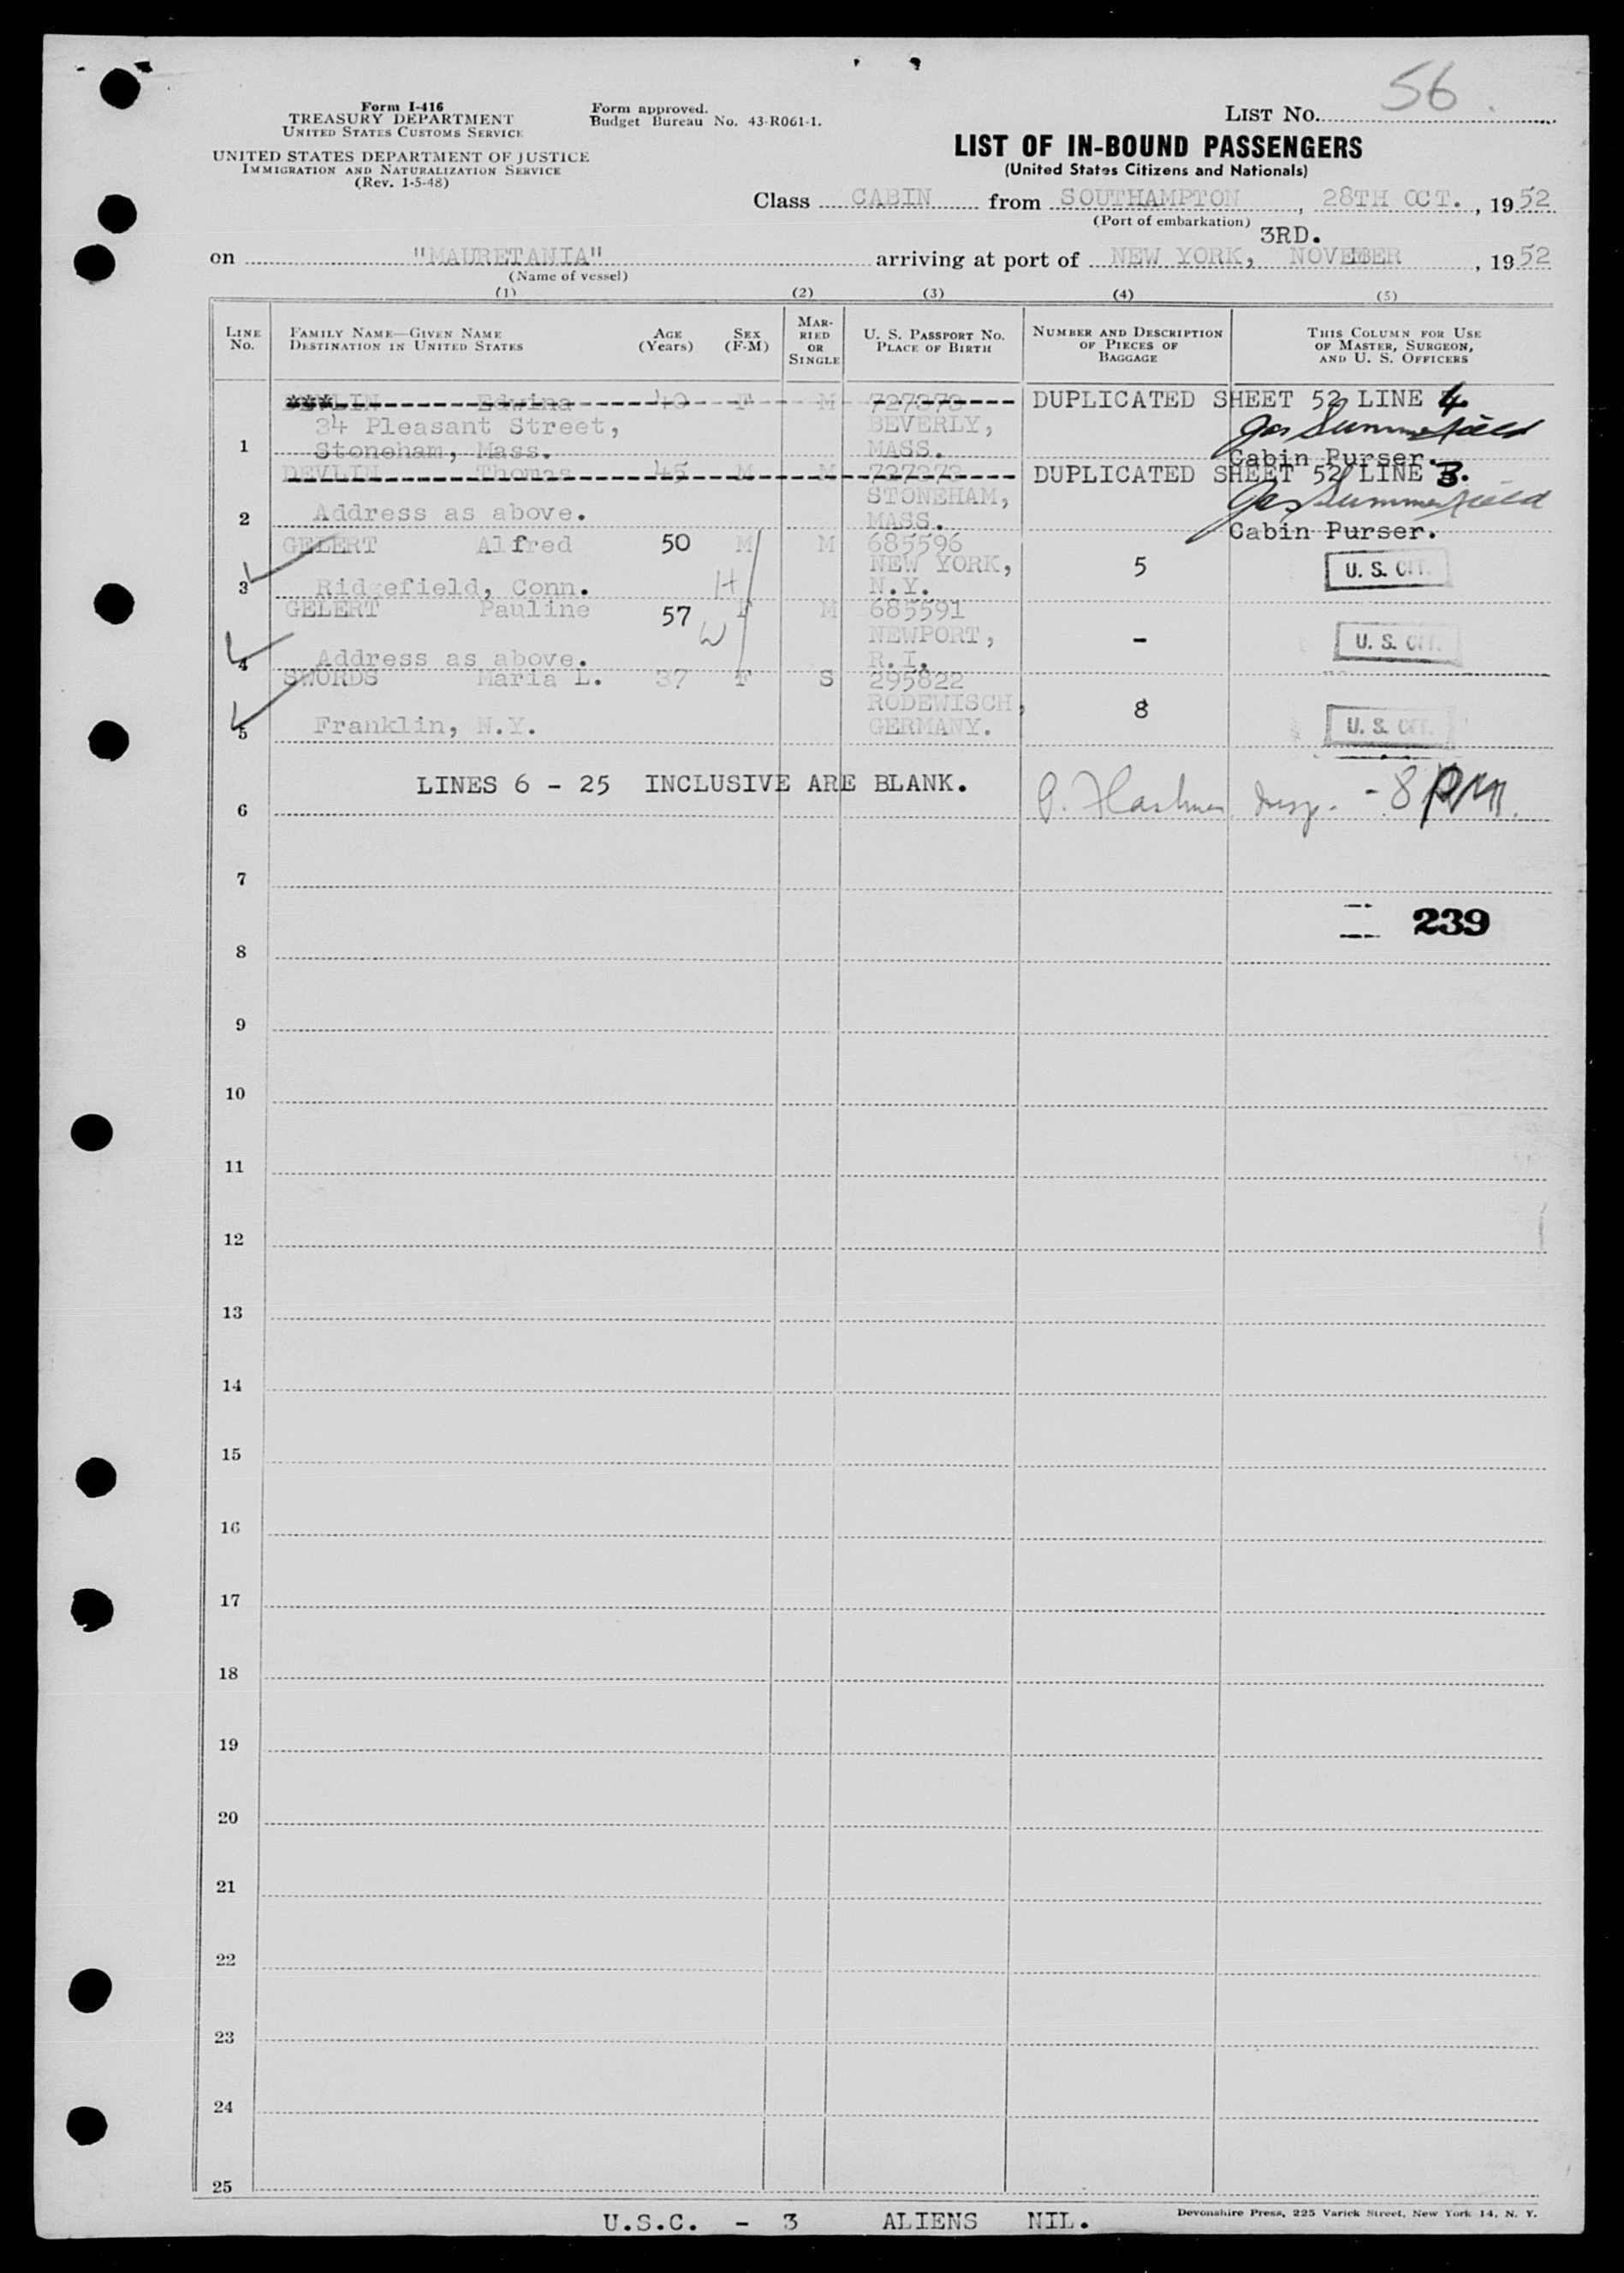 56.
Form I-416
TREASURY DEPARTMENT
UNITED STATES CUSTOMS SERVICE
Form approved.
Budget Bureau No. 43-R061-1.
LIST No.
UNITED STATES DEPARTMENT OF JUSTICE
IMMIGRATION AND NATURALIZATION SERVICE
(Rev. 1-5-48)
LIST OF IN-BOUND PASSENGERS
(United States Citizens and Nationals)
Class CABIN from SOUTHAMPTON, 28TH OCT., 1952
(Port of embarkation)
3RD.
on "MAURETANIA" arriving at port of NEW YORK, NOVEMBER, 1952
(Name of vessel)
(1) (2) (3) (4) (5)
LINE No.
FAMILY NAME—GIVEN NAME
DESTINATION IN UNITED STATES
AGE (Years)
SEX (F-M)
MARRIED OR SINGLE
U. S. PASSPORT No.
PLACE OF BIRTH
NUMBER AND DESCRIPTION OF PIECES OF BAGGAGE
THIS COLUMN FOR USE OF MASTER, SURGEON, AND U. S. OFFICERS
DEVLIN Edwina 40 F M DUPLICATED SHEET 52 LINE 4.
34 Pleasant Street, BEVERLY,
Jas Summerfield
1 Stoneham, Mass. MASS. Cabin Purser.
DEVLIN Thomas 45 M M DUPLICATED SHEET 52 LINE 3.
STONEHAM,
Jas Summerfield
2 Address as above. MASS. Cabin Purser.
GELERT Alfred 50 M M 685596
NEW YORK, 5 U. S. CIT.
3 Ridgefield, Conn. H N.Y.
GELERT Pauline 57 F M 685591
W NEWPORT, - U. S. CIT.
4 Address as above. R.I.
SWORDS Maria L. 37 F S 295822
RODEWISCH, 8
5 Franklin, N.Y. GERMANY. U. S. CIT.
LINES 6 - 25 INCLUSIVE ARE BLANK.
6 Insp. - 8 PM.
7
239
8
9
10
11
12
13
14
15
16
17
18
19
20
21
22
23
24
25
U.S.C. - 3 ALIENS NIL.
Devonshire Press, 225 Varick Street, New York 14, N. Y.